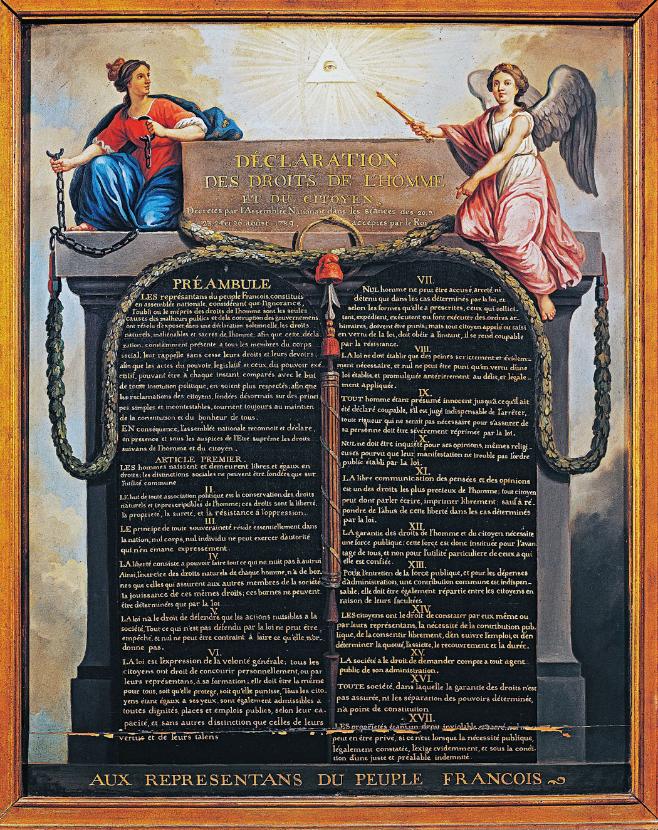 DÉCLARATION
DES DROITS DE L'HOMME
ET DU CITOYEN,
Décrétés par l'Assemblée Nationale dans les séances des 20, 21,
23, 24 et 26 août 1789, acceptés par le Roi
PRÉAMBULE
LES représentans du peuple François, constitués
en assemblée nationale, considérant que l'ignorance,
l'oubli ou le mépris des droits de l'homme sont les seules
causes des malheurs publics et de la corruption des gouvernemens
ont résolu d'exposer dans une déclaration solemnelle, les droits
naturels, inaliénables et sacrés de l'homme, afin que cette décla
ration, constamment présente a tous les membres du corps
social, leur rappelle sans cesse leurs droits et leurs devoirs,
afin que les actes du pouvoir législatif et ceux du pouvoir exé
cutif, pouvant être à chaque instant comparés avec le but
de toute institution politique, en soient plus respectés, afin que
les réclamations des citoyens, fondées désormais sur des princi
pes simples et incontestables, tournent toujours au maintien
de la constitution et du bonheur de tous.
EN conséquence, l'assemblée nationale reconnoit et déclare,
en presence et sous les auspices de l'Etre suprême les droits
suivans de l'homme et du citoyen.
ARTICLE PREMIER.
LES hommes naissent et demeurent libres et égaux en
droits; les distinctions sociales ne peuvent être fondées que sur
l'utilité commune
II.
LE but de toute association politique est la conservation des droits
naturels et imprescriptibles de l'homme; ces droits sont la liberté,
la propriété, la sureté, et la résistance à l'oppression.
III.
LE principe de toute souveraineté réside essentiellement dans
la nation, nul corps, nul individu ne peut exercer d'autorité
qui n'en emane expressement.
IV.
LA liberté consiste a pouvoir faire tout ce qui ne nuit pas à autrui
Ainsi, l'exercice des droits naturels de chaque homme, n'a de bor-
nes que celles qui assurent aux autres membres de la société
la jouissance de ces mêmes droits; ces bornes ne peuvent
être déterminées que par la loi
V.
LA loi n'a le droit de défendre que les actions nuisibles a la
société. Tout ce qui n'est pas défendu par la loi ne peut être
empêché, et nul ne peut être contraint à faire ce qu'elle n'or-
donne pas.
VI.
LA loi est l'expression de la volonté générale; tous les
citoyens ont droit de concourir personnellement, ou par
leurs représentans, à sa formation; elle doit être la même
pour tous, soit qu'elle protege, soit qu'elle punisse. Tous les cito
yens étant égaux a ses yeux, sont également admissibles a
toutes dignités, places et emplois publics, selon leur ca
pacité, et sans autres distinction que celles de leurs
vertus et de leurs talens
VII.
NUL homme ne peut être accusé, arreté, ni
détenu que dans les cas déterminés par la loi, et
selon les formes qu'elle a prescrites, ceux qui sollici-
tent, expédient, exécutent ou font exécuter des ordres ar-
bitraires, doivent être punis; mais tout citoyen appelé ou saisi
en vertu de la loi, doit obéir a l'instant, il se rend coupable
par la résistance.
VIII.
LA loi ne doit établir que des peines strictement et évidem-
ment nécessaire, et nul ne peut être puni qu'en vertu d'une
loi établie et promulguée antérierement au délit, et légale-
ment appliquée.
IX.
TOUT homme étant présumé innocent jusqu'a ce qu'il ait
été déclaré coupable, s'il est jugé indispensable de l'arrêter,
toute rigueur qui ne serait pas nécessaire pour s'assurer de
sa personne doit être sévèrement réprimée par la loi.
X.
NUL ne doit être inquiété pour ses opinions, mêmes religi
euses pourvu que leur manifestation ne trouble pas l'ordre
public établi par la loi.
XI.
LA libre communication des pensées et des opinions
est un des droits les plus precieux de l'homme; tout citoyen
peut donc parler écrire, imprimer librement: sauf à ré
pondre de l'abus de cette liberté dans les cas déterminés
par la loi.
XII.
LA garantie des droits de l'homme et du citoyen nécessite
une force publique; cette force est donc instituée pour l'avan
tage de tous, et non pour l'utilité particuliere de ceux a qui
elle est confiée.
XIII.
POUR l'entretien de la force publique, et pour les dépenses
d'administration, une contribution commune est indispen-
sable; elle doit être également répartie entre les citoyens en
raison de leurs facultées
XIV.
LES citoyens ont le droit de constater par eux même ou
par leurs représentans, la nécessité de la contribution pub-
lique, de la consentir librement, d'en suivre l'emploi, et d'en
déterminer la quotité, l'assiette, le recouvrement et la durée.
XV.
LA société a le droit de demander compte a tout agent
public de son administration.
XVI.
TOUTE société, dans laquelle la garantie des droits n'est
pas assurée, ni les séparation des pouvoirs déterminée,
n'a point de constitution
XVII.
LES propriétés étant un droit inviolable et sacré, nul ne
peut en être privé, si ce n'est lorsque la nécessité publique,
légalement constatée, l'exige evidemment, et sous la condi-
tion d'une juste et préalable indemnité.
AUX REPRESENTANS DU PEUPLE FRANCOIS